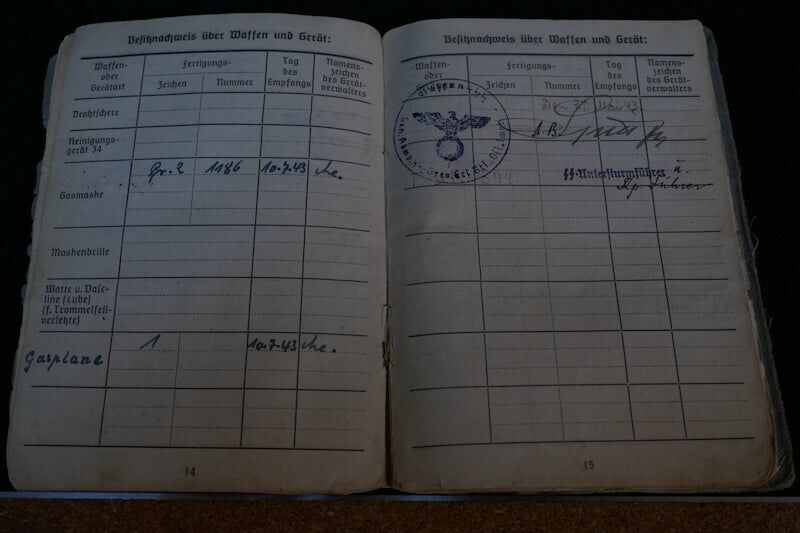 Besitznachweis über Waffen und Gerät:
Waffen-
oder
Gerätart
Fertigungs-
Zeichen
Nummer
Tag
des
Empfangs
Namens-
zeichen
des Gerät-
verwalters
Drahtschere
Reinigungs-
gerät 34
Gasmaske
Gr. 2
1186
10.7.43
Maskenbrille
Watte u. Vase-
line (Tube)
(f. Trommelfell-
verletzte)
Gasplane
1
10.7.43
14
Besitznachweis über Waffen und Gerät:
Waffen-
oder
Gerätart
Fertigungs-
Zeichen
Nummer
Tag
des
Empfangs
Namens-
zeichen
des Gerät-
verwalters
Waffen-SS
SS-Untersturmführer u.
Kp. Führer
15